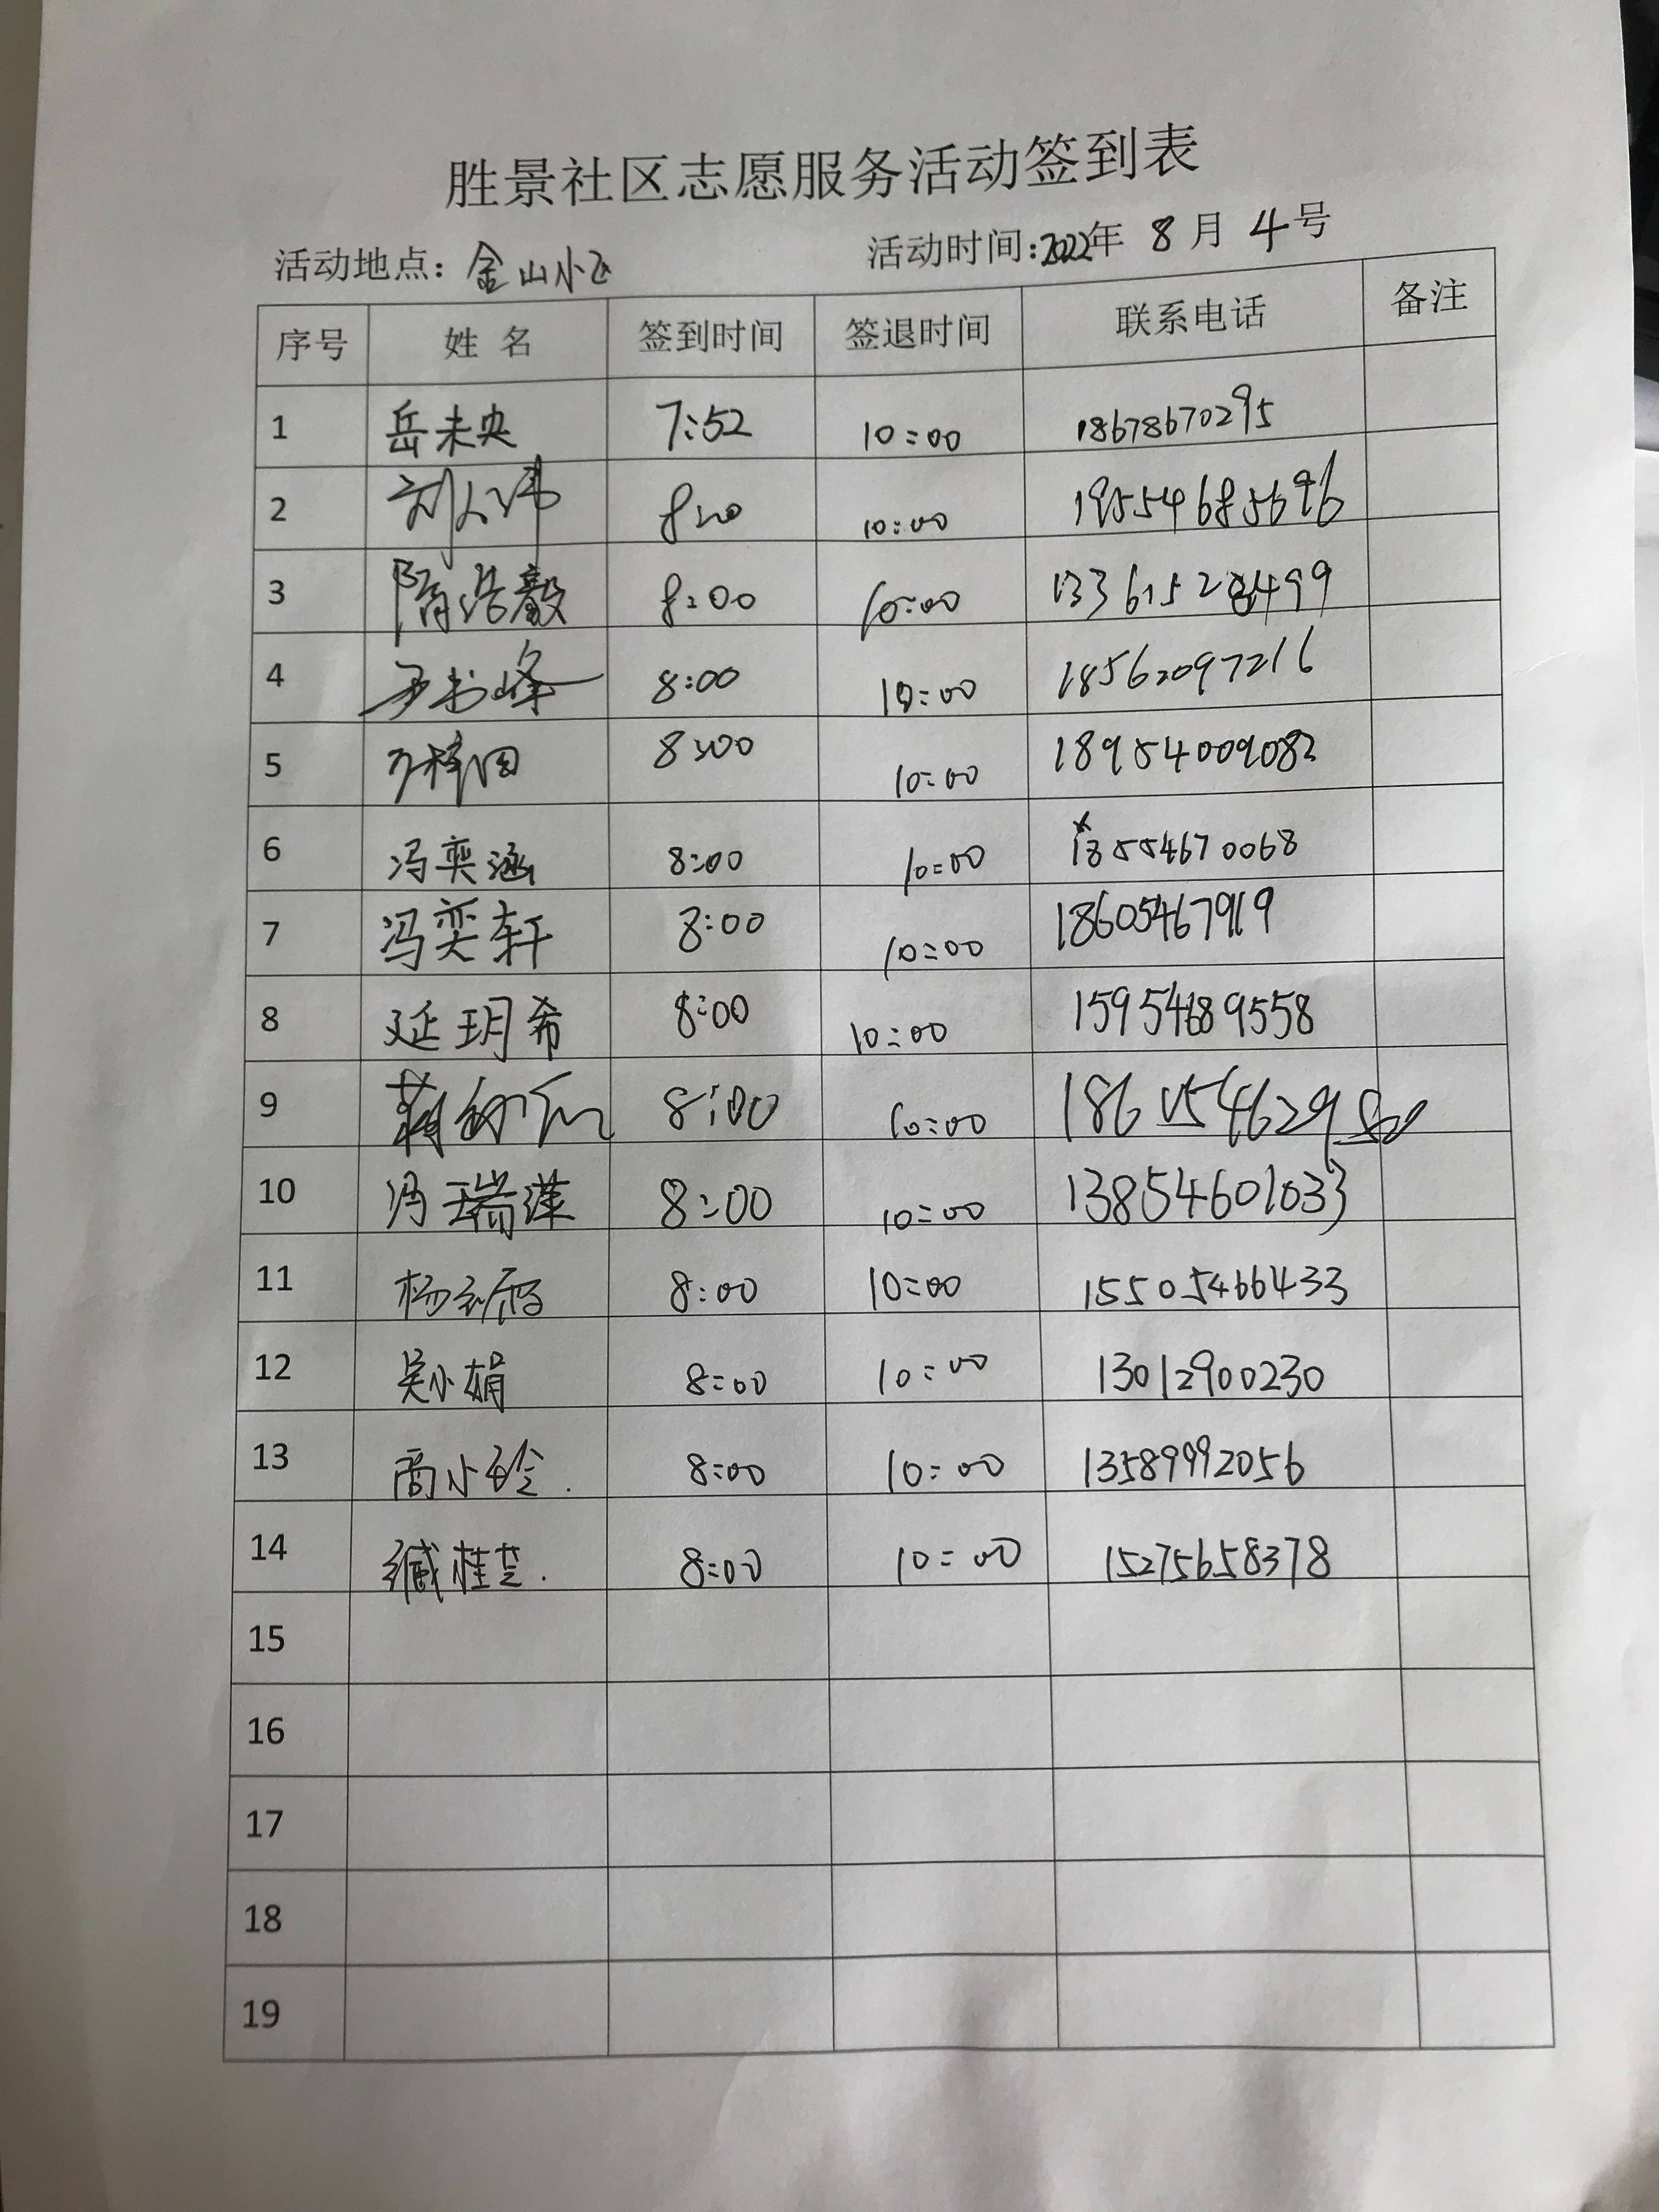 胜景社区志愿服务活动签到表
活动地点：金山小区 活动时间:2022年 8月 4号
序号 姓 名 签到时间 签退时间 联系电话 备注
1 岳未央 7:52 10:00 18678670295
2 8:00 10:00 19554685696
3 隋浩毅 8:00 10:00
4 8:00 10:00 18562097216
5 8:00 10:00 18954009082
6 冯奕涵 8:00 10:00 18554670068
7 冯奕轩 8:00 10:00 18605467919
8 延玥希 8:00 10:00 15954689558
9 8:00 10:00
10 冯瑞潆 8:00 10:00 13854601033
11 8:00 10:00 15505466433
12 吴小娟 8:00 10:00 13012900230
13 商小玲. 8:00 10:00 13589992056
14 臧桂芝. 8:00 10:00 15275658378
15
16
17
18
19